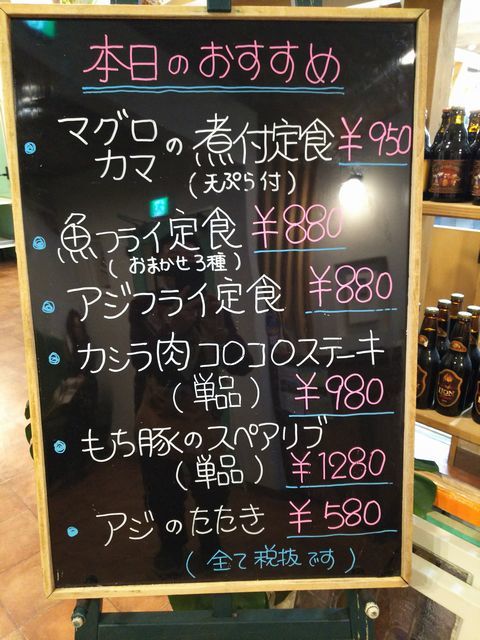 本日のおすすめ
マグロカマの煮付定食 ¥950
(天ぷら付)
魚フライ定食 ¥880
(おまかせ3種)
アジフライ定食 ¥880
カシラ肉コロコロステーキ
(単品) ¥980
もち豚のスペアリブ
(単品) ¥1280
アジのたたき ¥580
(全て税抜です)